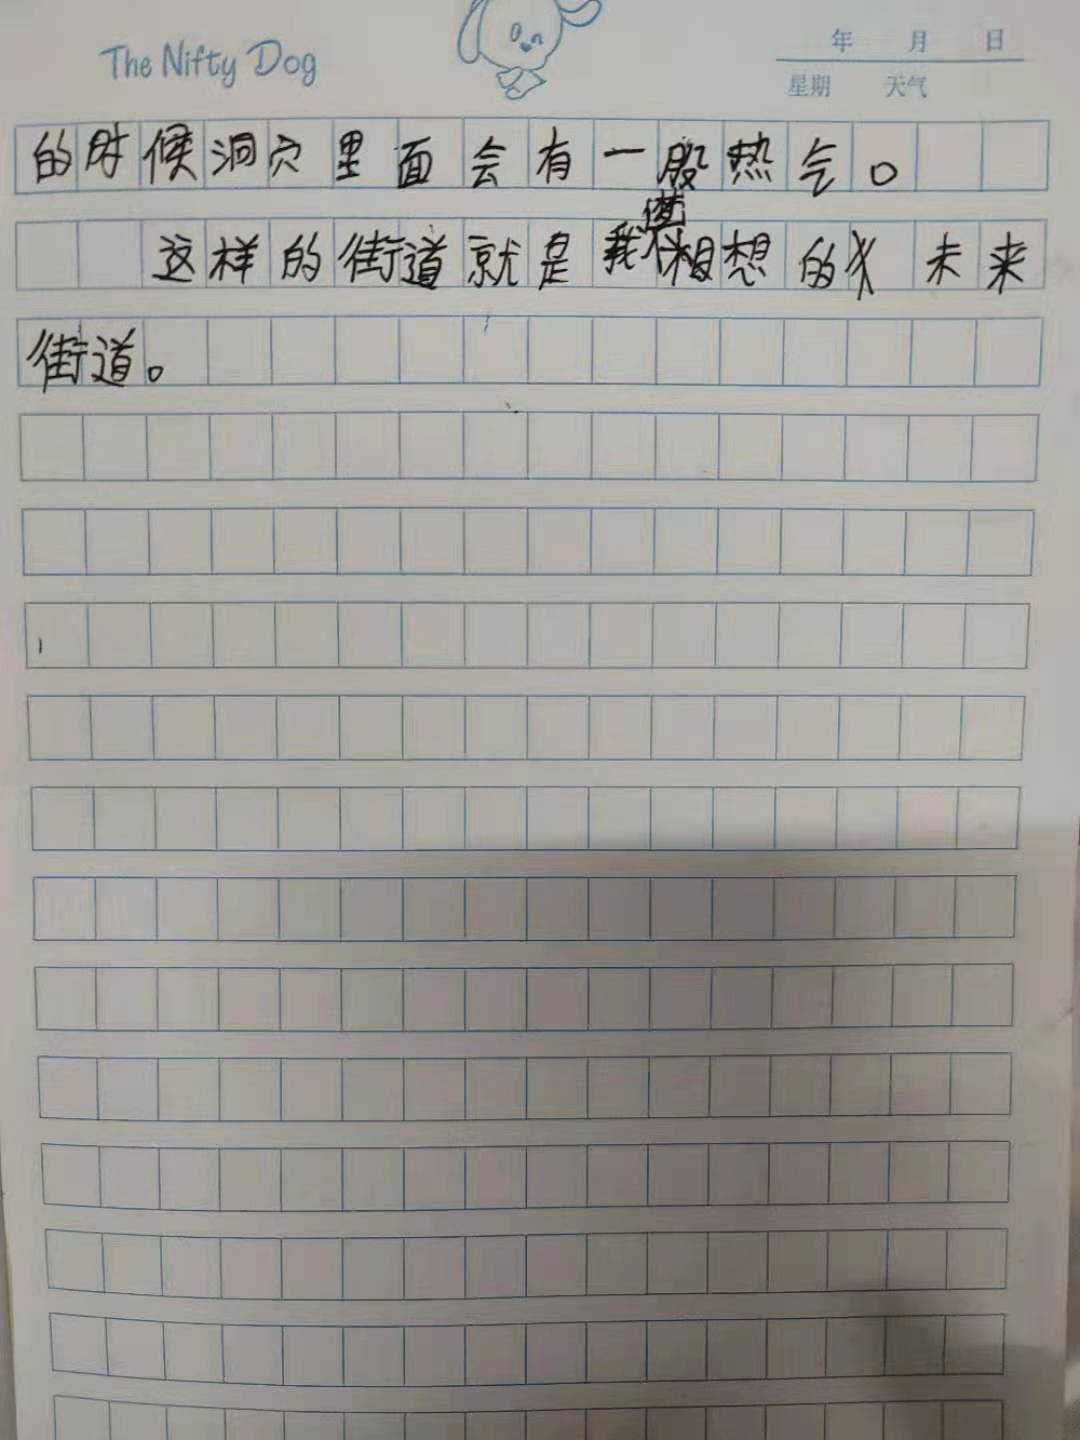 The Nifty Dog
年 月 日
星期 天气
的时候洞穴里面会有一股热气。
这样的街道就是我相想的未来
街道。